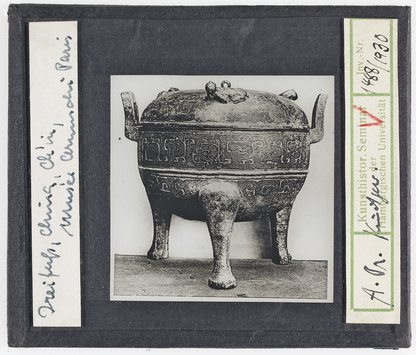 Dreifuß, Ching, Ch'in,
Musée Cernuschi Paris
Kunsthistor. Seminar
der
Hamburgischen Universität
Inv.-Nr.
1488/1930